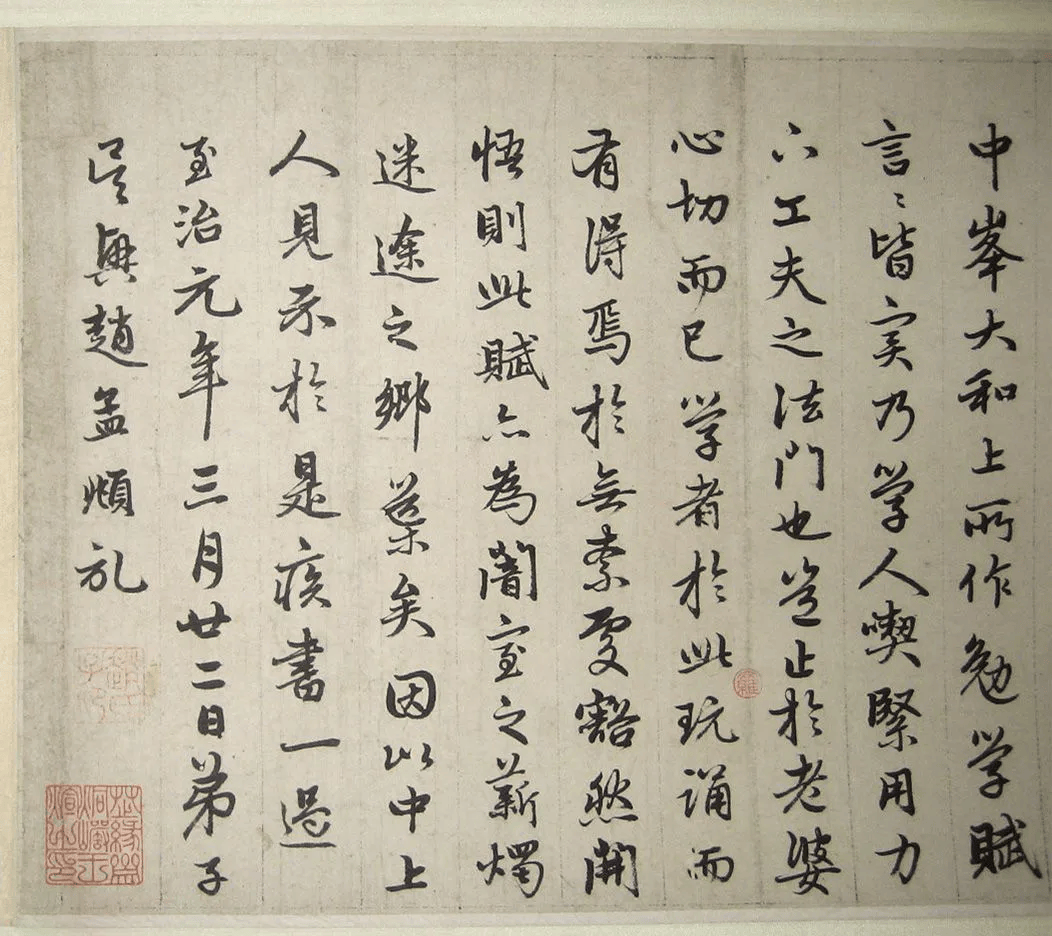 中峯大和上所作勉学賦
言〻皆实乃学人喫緊用力
下工夫之法門也豈止於老婆
心切而已学者於此玩誦而
有得焉於無索處豁然開
悟則此賦亦為闇室之薪燭
迷途之鄉蕖矣因以中上
人見示於是疾書一過
至治元年三月廿二日弟子
吳興趙孟頫